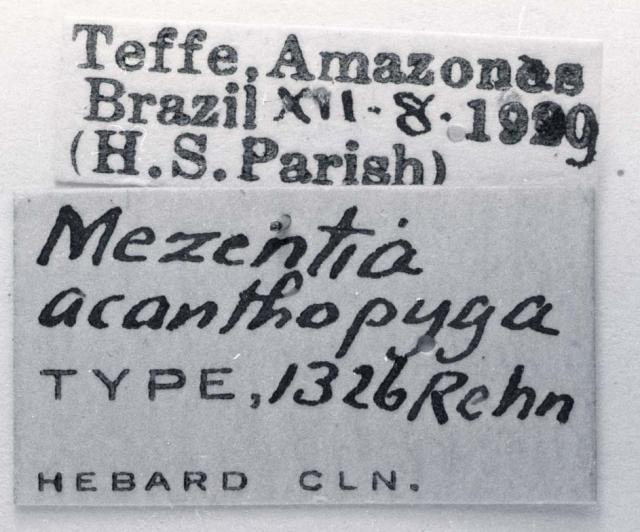 Teffe, Amazonas
Brazil XII·8·1929
(H.S. Parish)
Mezentia
acanthopyga
TYPE, 1326 Rehn
HEBARD CLN.